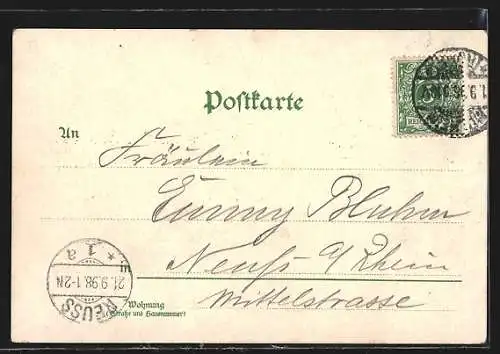 Postkarte
An
Fräulein
Emmy Bluhm
Neuss a/Rhein
in
Mittelstrasse
Wohnung
(Straße und Hausnummer)
* 1 a
21.9.98.1-2N
NEUSS